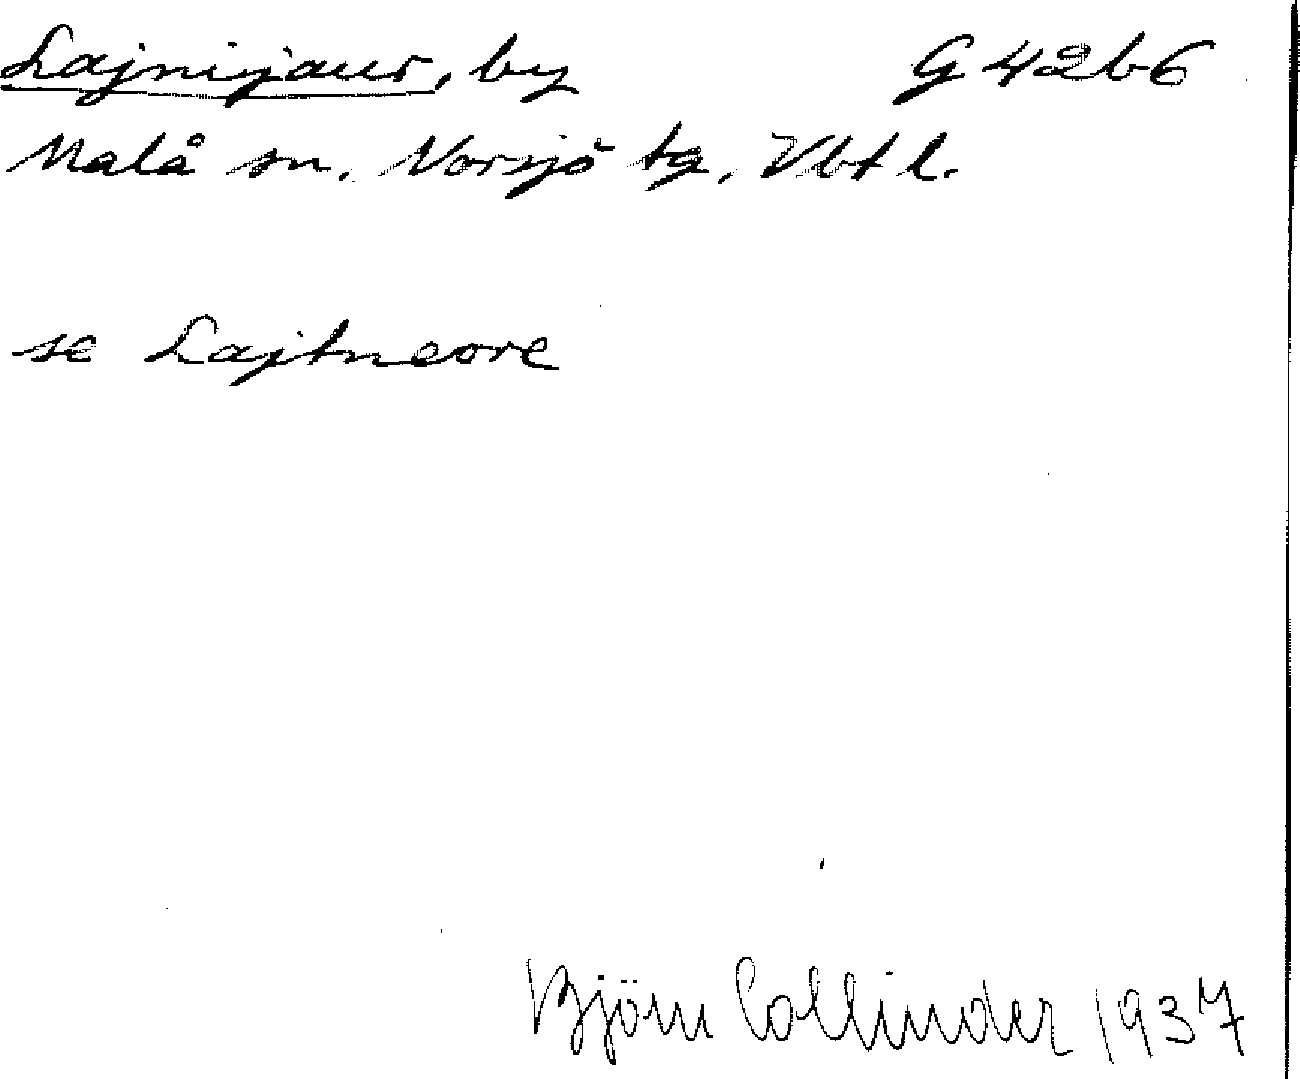 Lajnijaur, by G 42b6
Malå sn. Norsjö tg. Vbt l.
se Lajtneore
Björn Collinder 1937